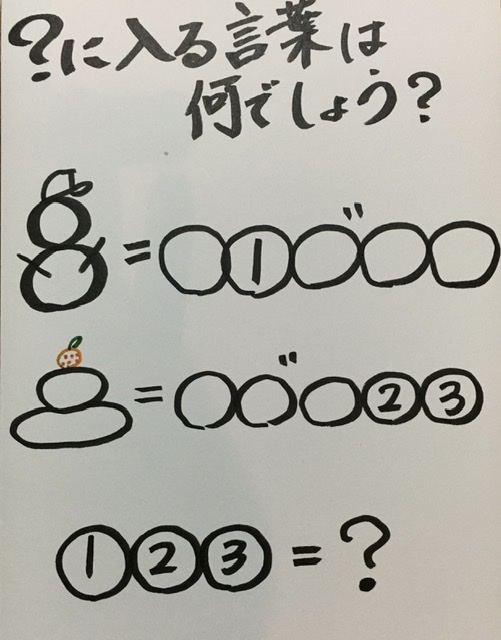 ?に入る言葉は
何でしょう?
=○①○゛○○
=○○゛○②③
①②③=?